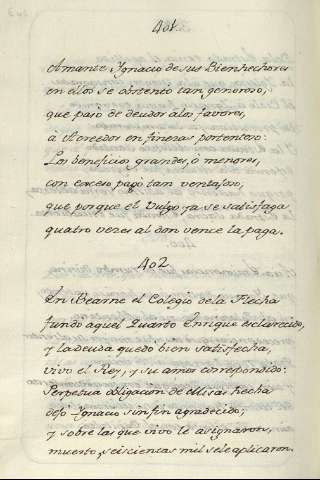 401.
Amante Ygnacio de sus Bienhechores
en ellos se obstentò tan generoso,
que pasò de deudor a los favores,
à Acreedor en finezas portentoso.
Los beneficios grandes, ò menores,
con exceso pagò tan ventajoso,
que porque el Vulgo ya se satisfaga
quatro vezes al don vence la paga.
402.
En Bearne el Colegio de la Flecha
fundo aquel Quarto Enrique esclarecido,
y la deuda quedo bien satisfecha,
vivo el Rey, y su amor correspondido:
Perpetua obligacion de Missas hecha
dejò Ygnacio sin fin agradecido;
y sobre las que vivo le asignaron,
muerto, seiscientas mil se le aplicaron.